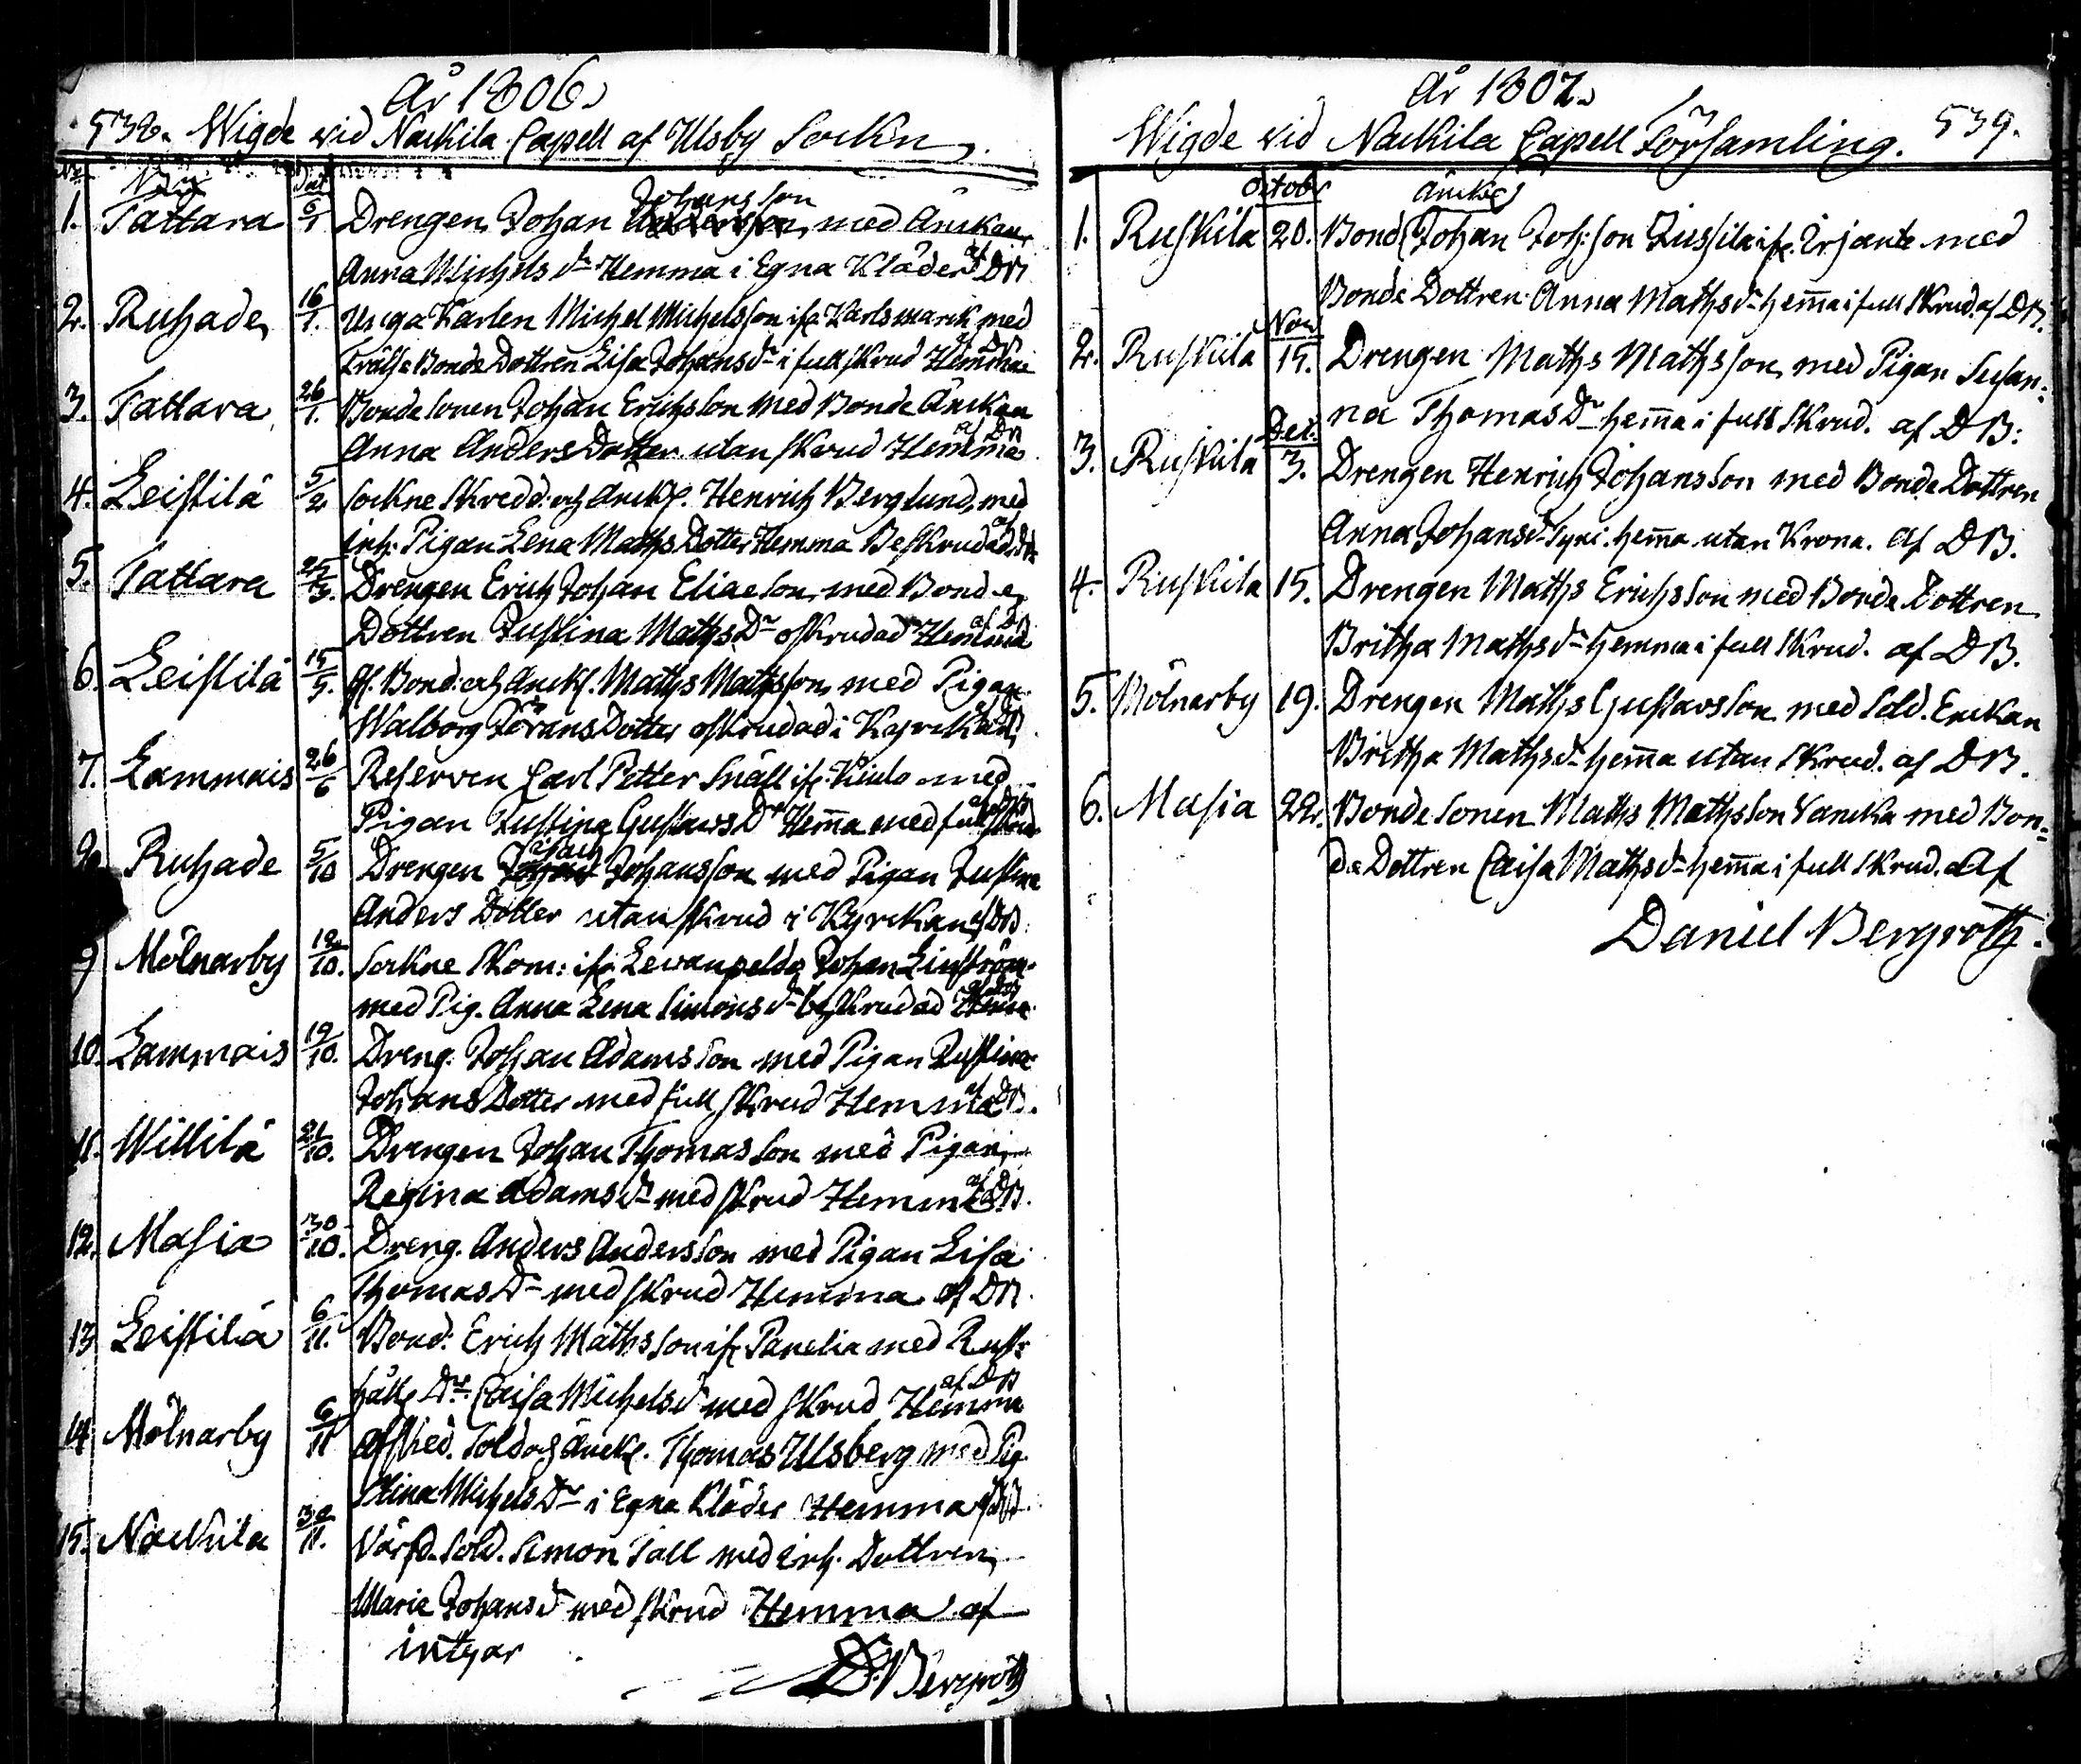 År 1806.
538. Wigde vid Nackila Capell af Ulsby Sockn.
No Dat
Johansson
1. Tattara 6/1 Drengen Johan Andersson, med Änckan
Anna Michels dr Hemma i Egna Kläder af DB
2. Ruhade 16/1. Unga Karlen Michel Michelsson ifr. Karlsmark med
Frälse Bonde Dottren Lisa Johansdr i full skrud Hemma af DB
3. Tattara 26/1. Bonde Sonen Johan Erichsson med Bonde Änckan
Anna Anders Dotter utan skrud Hemma af DB
4. Leistilä 5/2 Sockne Skredd. och Anckl. Henrich Berglund, med
inh. Pigan Lena Maths Dotter Hemma Beskrudad af DB
5. Tattara 25/3. Drengen Erich Johan Eliaeson, med Bonde
Dottren Justina Maths Dr oskrudad Hemma af DB
6. Leistilä 15/5. Bond. och Anckl. Maths Mathsson, med Pigan
Walborg Jörans Dotter oskrudad i Kyrckan
7. Lammais 26/6 Reserven Carl Petter Snäll ifr. Kiulo med
Pigan Justina Gustavs Dr Hem̄a med full skrud af DB
8. Ruhade 5/10 Drengen Johansson med Pigan Justina
Anders Dotter utan skrud i Kyrckan af DB
9 Mölnarby 12/10. Sockne Skom: ifr. Lewanpelda Johan Linström
med Pig. Anna Lena Simons dr beskrudad Hemma af DB
10. Lammais 19/10. Dreng. Johan Adamsson med Pigan Justina
Johans Dotter med full skrud Hemma af DB.
11. Willilä 21/10. Drengen Johan Thomasson med Pigan
Regina Adams dr med skrud Hemma af DB.
12. Masia 30/10. Dreng. Anders Andersson med Pigan Lisa
Thomas Dr med skrud Hemma af DB.
13 Leistilä 6/11. Bond: Erich Mathsson ifr. Panelia med Rust-
hålls Dr. Caisa Michels dr med skrud Hemma af DB
14 Mölnarby 6/11 Afsked. Sold. och Änckl. Thomas Ulsberg med Pig
Stina Michels Dr i Egna Kläder Hemma af DB
15. Nackila 30/11. Värfd. Sold. Simon Tall med inh. Dottren
Maria Johans dr med skrud Hemma af
intygar
D: Bergroth
År 1807.
Wigde vid Nackila Capell Församling. 539.
Octobr Änckl
1. Ruskila 20. Bond Johan Joh:son Jussila ifr. Irjante med
Bonde Dottren Anna Maths dr hem̄a i full skrud. af DB.
Nov
2. Ruskila 15. Drengen Maths Mathsson, med Pigan Susan-
na Thomas Dr hem̄a i full skrud. af DB:
Dec.
3. Ruskila 3. Drengen Henrich Johansson med Bonde Dottren
Anna Johans dr Tyni. hem̄a utan Krona. af DB.
4. Ruskila 15. Drengen Maths Erichsson med Bonde Dottren
Britha Maths dr hemma i full skrud. af DB.
5. Mölnarby 19. Drengen Maths Gustavsson med Sold. Enckan
Britha Maths dr hem̄a utan skrud. af DB.
6. Masia 22. Bonde Sonen Maths Mathsson Yancka med Bon-
de Dottren Caisa Maths dr hem̄a i full skrud. Af
Daniel Bergroth.